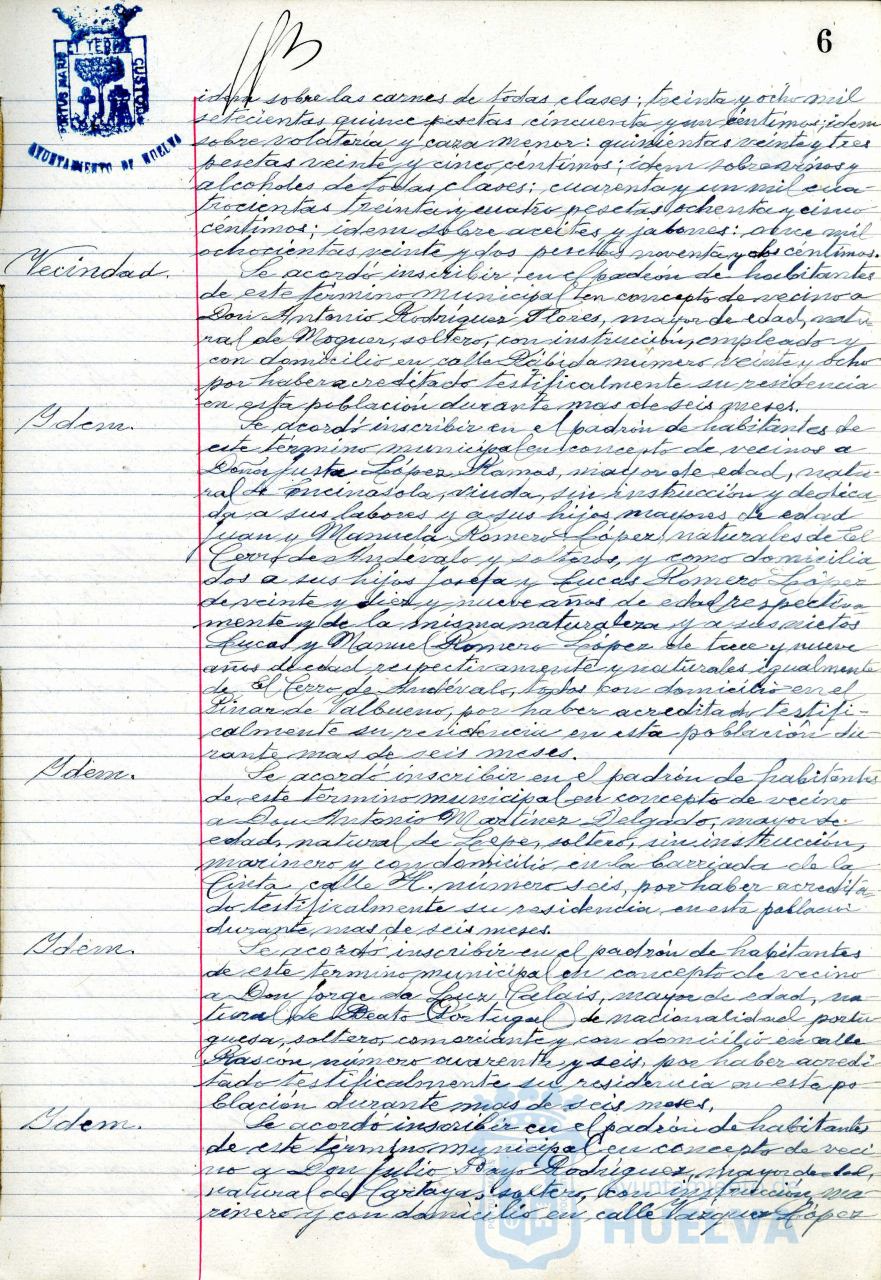 6
PORTUS MARIS
ET TERRE
CUSTODIA
AYUNTAMIENTO DE HUELVA
idem sobre las carnes de todas clases; treinta y ocho mil
setecientas quince pesetas cincuenta y un céntimos; idem
sobre volatería y caza menor: quinientas veinte y tres
pesetas veinte y cinco céntimos; idem sobre vinos y
alcoholes de todas clases; cuarenta y un mil cua-
trocientas treinta y cuatro pesetas ochenta y cinco
céntimos; idem sobre aceites y jabones: once mil
ochocientas veinte y dos pesetas noventa y dos céntimos.
Vecindad.
Se acordó inscribir en el padrón de habitantes
de este término municipal en concepto de vecino a
Don Antonio Rodríguez Flores, mayor de edad, natu-
ral de Moguer, soltero, con instrucción, empleado y
con domicilio en calle Rábida número veinte y ocho
por haber acreditado testificalmente su residencia
en esta población durante mas de seis meses.
Idem.
Se acordó inscribir en el padrón de habitantes de
este término municipal en concepto de vecinos a
Doña Justa López Ramos, mayor de edad, natu-
ral de Encinasola, viuda, sin instrucción y dedica-
da a sus labores y a sus hijos mayores de edad
Juan y Manuela Romero López naturales de El
Cerro de Andévalo y solteros, y como domicilia-
dos a sus hijos Josefa y Lucas Romero López
de veinte y diez y nueve años de edad respectiva-
mente y de la misma naturaleza y a sus nietos
Lucas y Manuel Romero López de trece y nueve
años de edad respectivamente y naturales igualmente
de El Cerro de Andévalo, todos con domicilio en el
Pinar de Valbueno, por haber acreditado testifi-
calmente su residencia en esta población du-
rante mas de seis meses.
Idem.
Se acordó inscribir en el padrón de habitantes
de este término municipal en concepto de vecino
a Don Antonio Martínez Delgado, mayor de
edad, natural de Lepe, soltero, sin instrucción,
marinero y con domicilio en la barriada de la
Cinta, calle H. número seis, por haber acredita-
do testificalmente su residencia en esta población
durante mas de seis meses.
Idem.
Se acordó inscribir en el padrón de habitantes
de este término municipal en concepto de vecino
a Don Jorge da Luz Calais, mayor de edad, na-
tural de Beato (Portugal) de nacionalidad portu-
guesa, soltero, comerciante y con domicilio en calle
Rascón número cuarenta y seis, por haber acredi-
tado testificalmente su residencia en esta po-
blación durante mas de seis meses.
Idem.
Se acordó inscribir en el padrón de habitantes
de este término municipal en concepto de veci-
no a Don Julio Rodríguez, mayor de edad,
natural de Cartaya, soltero, con instrucción, ma-
rinero y con domicilio en calle Vázquez López
Ayuntamiento de
HUELVA